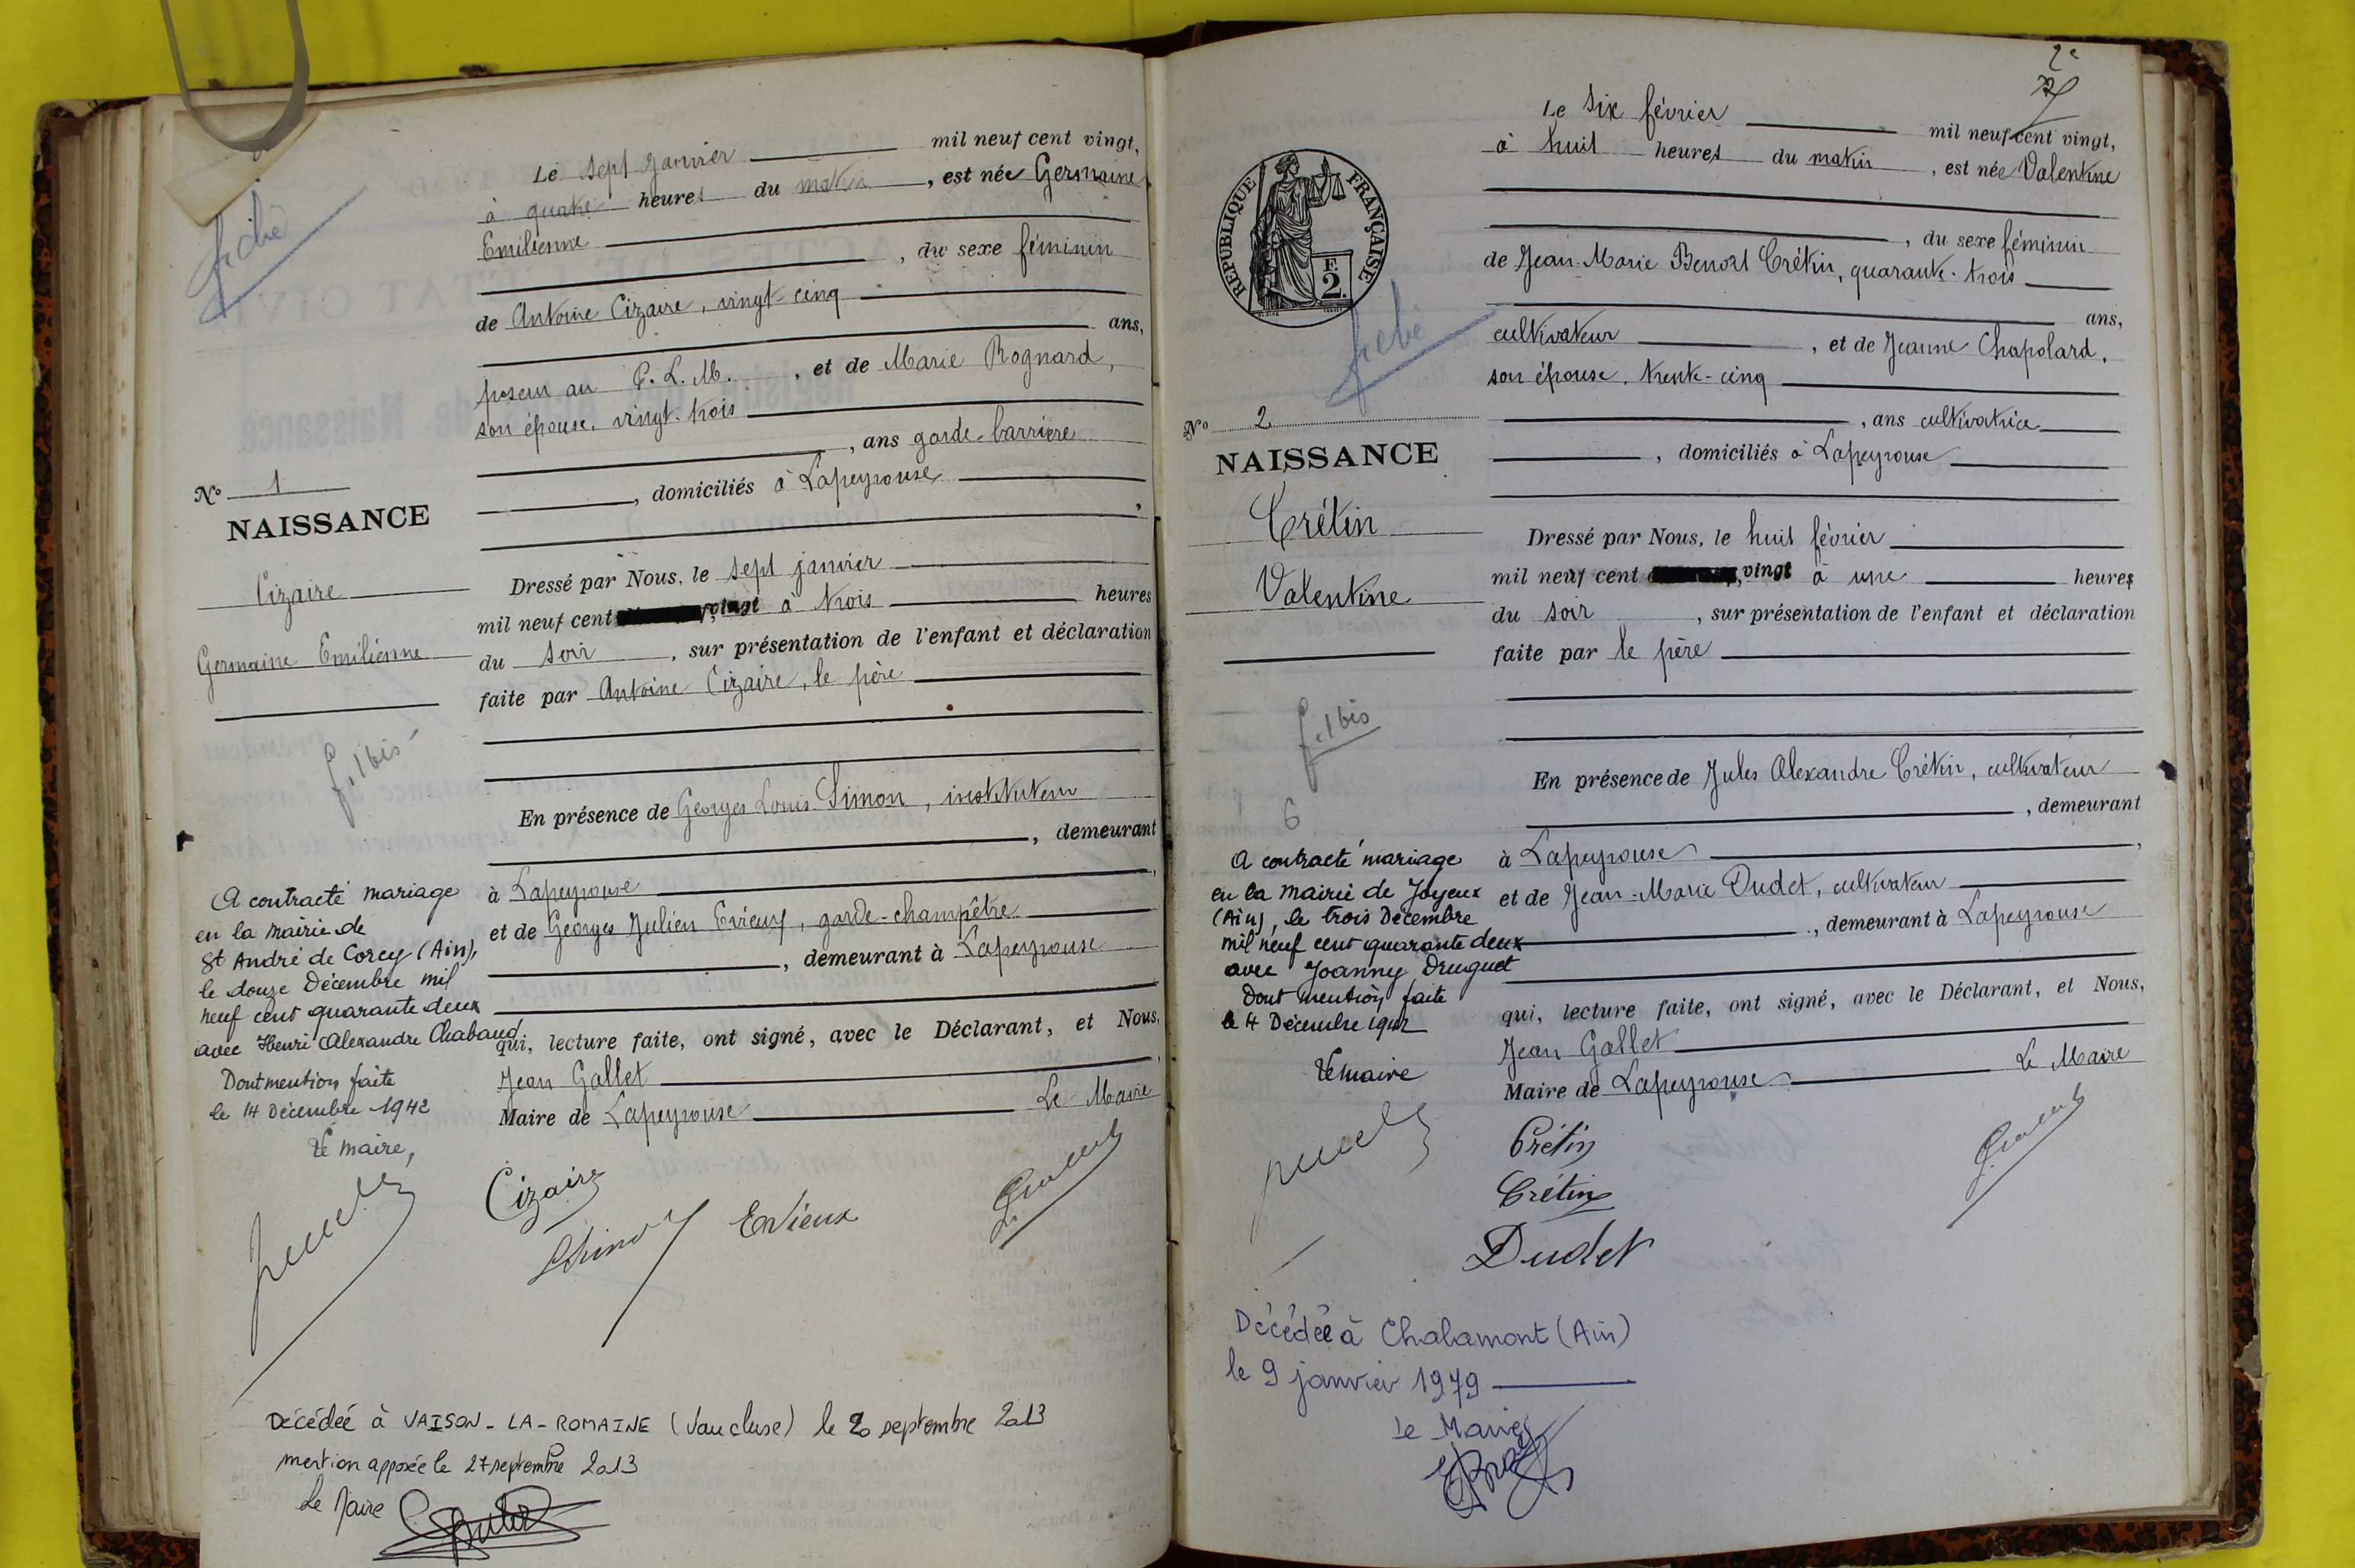 fiché
Le sept janvier mil neuf cent vingt,
à quatre heures du matin, est née Germaine
Emilienne
, du sexe féminin
de Antoine Cizaire, vingt-cinq
ans,
poseur au P. L. M., et de Marie Rognard,
son épouse, vingt-trois
, ans garde-barrière
, domiciliés à Lapeyrouse
N° 1
NAISSANCE
Cizaire
Germaine Emilienne
f. 1 bis
Dressé par Nous, le sept janvier
mil neuf cent vingt à trois heures
du soir, sur présentation de l'enfant et déclaration
faite par Antoine Cizaire, le père
En présence de Georges Louis Simon, instituteur
, demeurant
à Lapeyrouse,
et de Georges Julien Evieux, garde-champêtre
, demeurant à Lapeyrouse
qui, lecture faite, ont signé, avec le Déclarant, et Nous,
Jean Gallet
Maire de Lapeyrouse Le Maire
A contracté mariage
en la mairie de
St André de Corcy (Ain),
le douze Décembre mil
neuf cent quarante deux
avec Henri Alexandre Chabaud
Dont mention faite
le 14 Décembre 1942
Le maire,
Cizaire
Evieux
Décédée à VAISON-LA-ROMAINE (Vaucluse) le 20 septembre 2013
mention apposée le 27 septembre 2013
Le Maire
2e
Le six février mil neuf cent vingt,
à huit heures du matin, est née Valentine
, du sexe féminin
de Jean-Marie Benoît Crétin, quarante-trois
ans,
cultivateur, et de Jeanne Chapolard,
son épouse, trente-cinq
, ans cultivatrice
, domiciliés à Lapeyrouse
RÉPUBLIQUE FRANÇAISE
F.
2.
fiché
N° 2
NAISSANCE
Crétin
Valentine
f. 1 bis
6
Dressé par Nous, le huit février
mil neuf cent vingt à une heures
du soir, sur présentation de l'enfant et déclaration
faite par le père
En présence de Jules Alexandre Crétin, cultivateur
, demeurant
à Lapeyrouse,
et de Jean-Marie Dudet, cultivateur
, demeurant à Lapeyrouse
qui, lecture faite, ont signé, avec le Déclarant, et Nous,
Jean Gallet
Maire de Lapeyrouse Le Maire
A contracté mariage
en la mairie de Joyeux
(Ain), le trois Décembre
mil neuf cent quarante deux
avec Joanny Druguet
Dont mention faite
le 4 Décembre 1942
Le maire
Crétin
Crétin
Dudet
Décédée à Chalamont (Ain)
le 9 janvier 1979
Le Maire